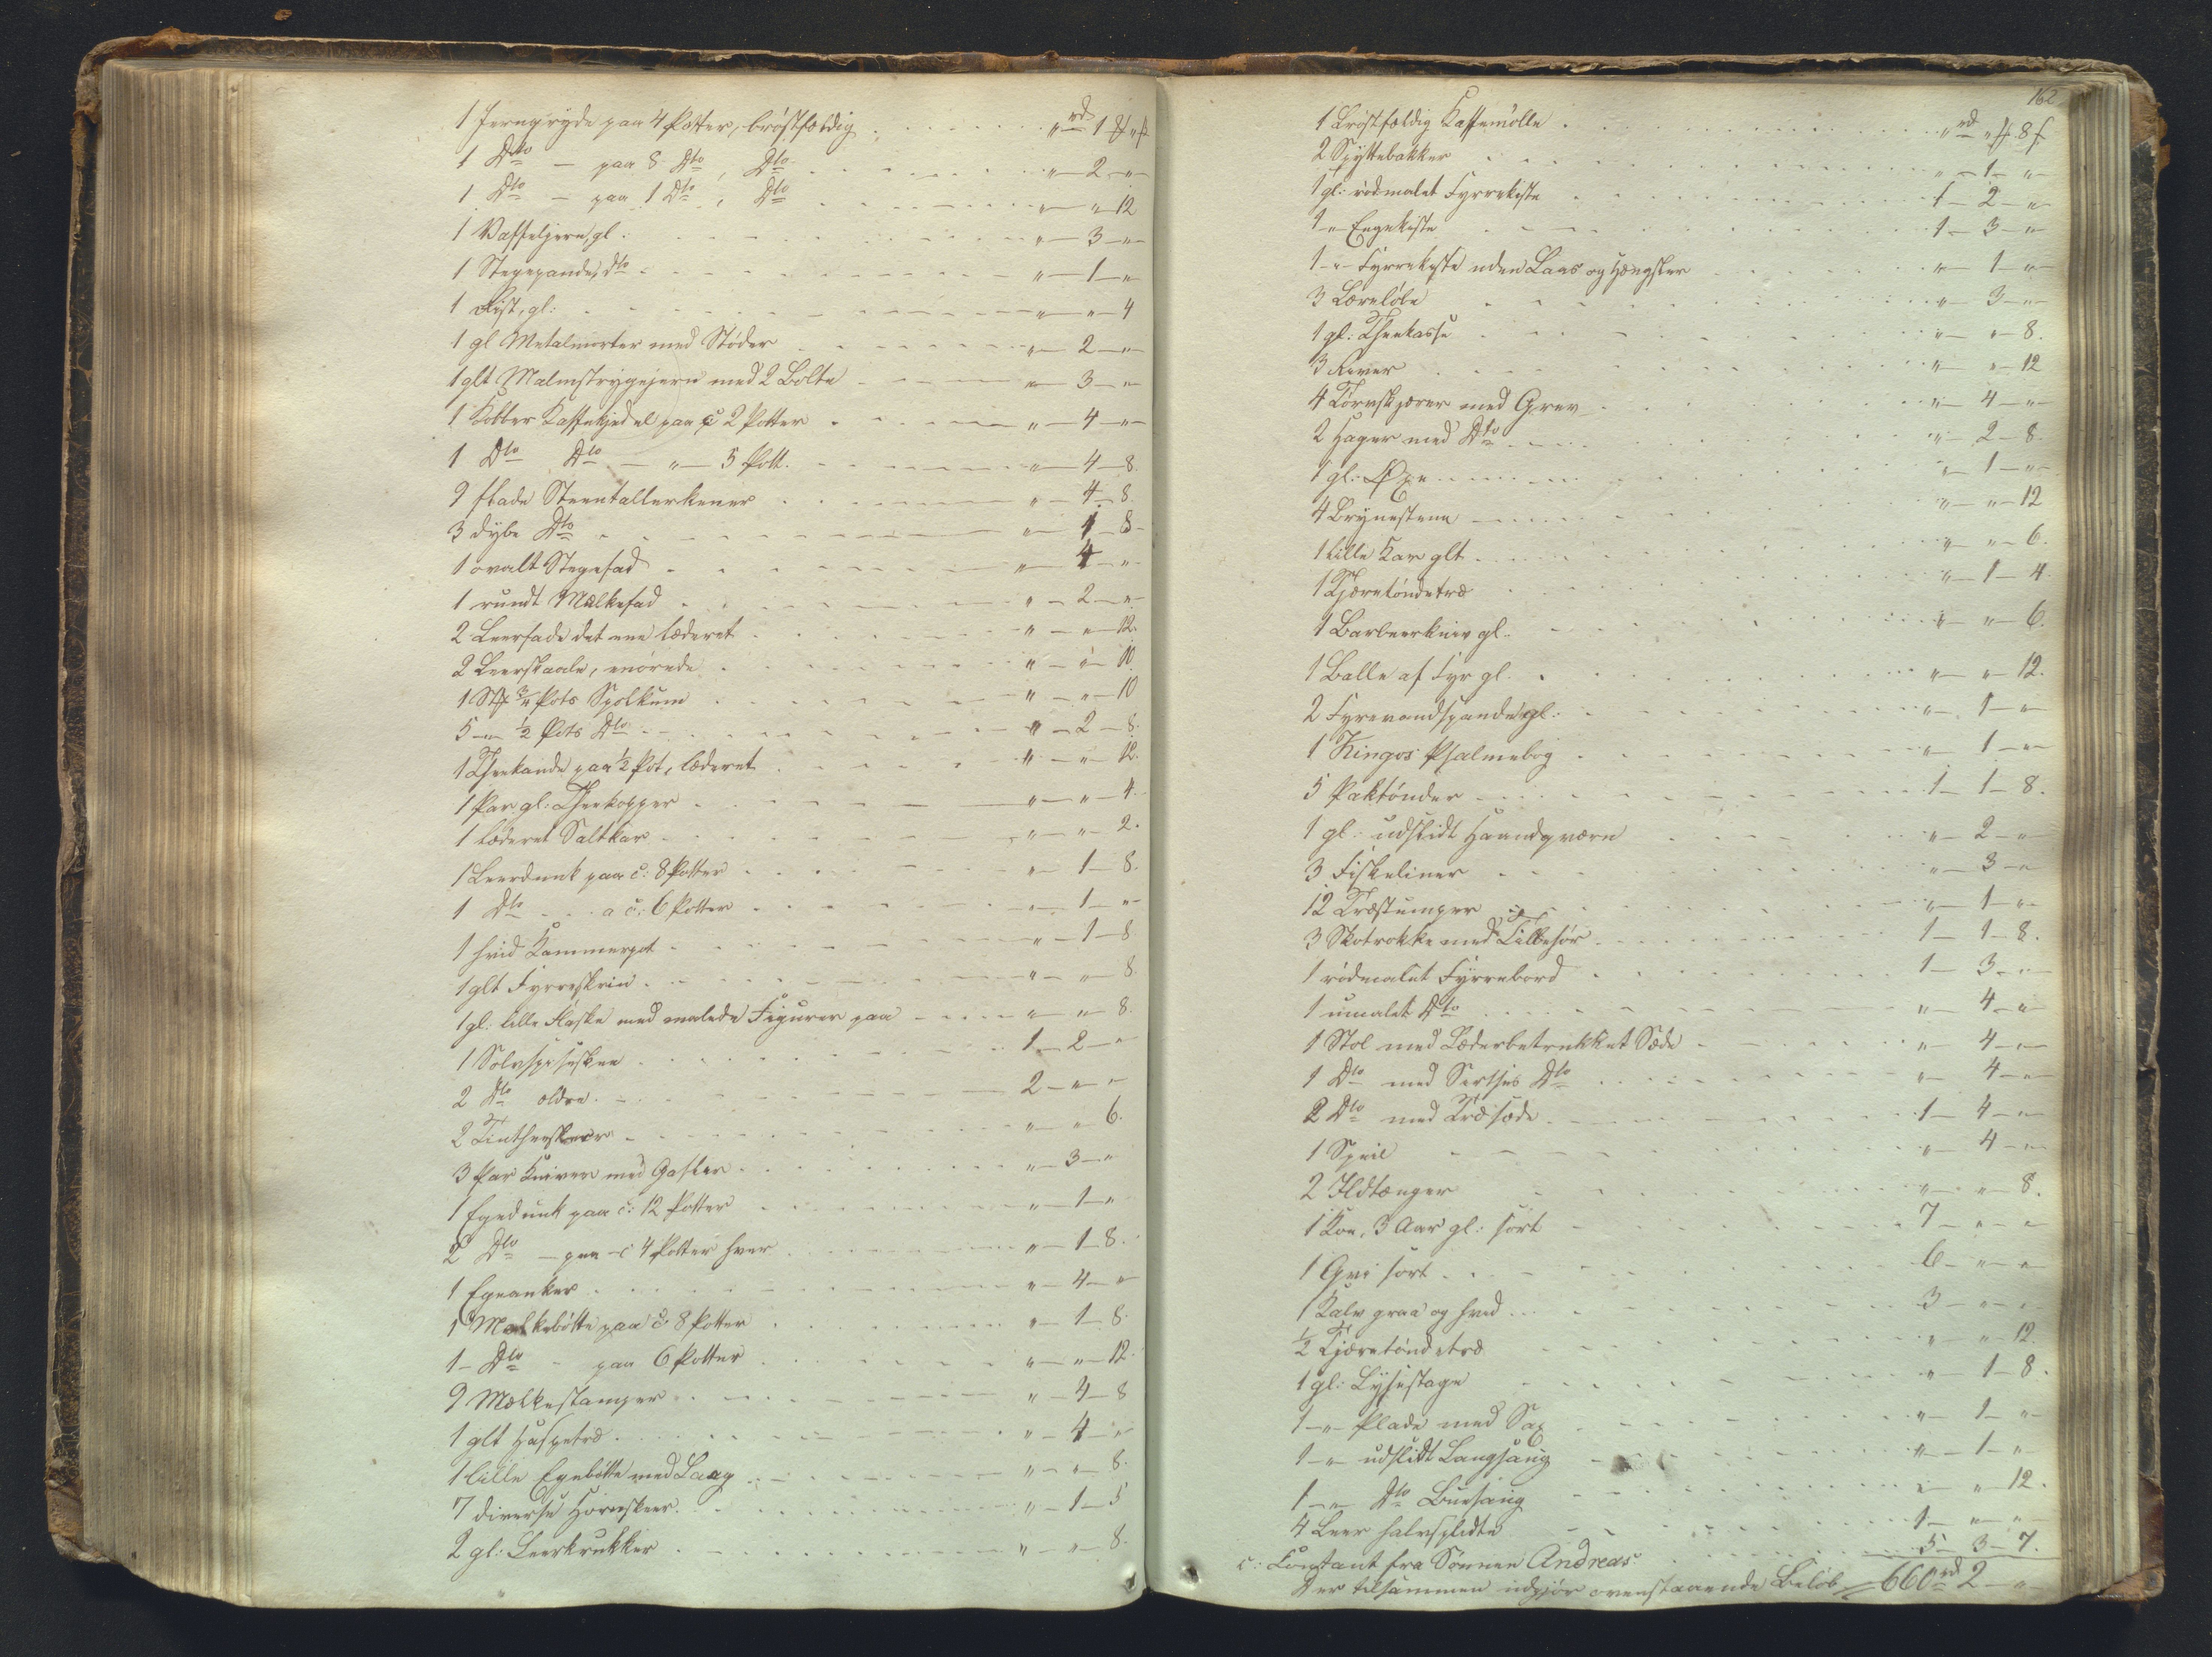 1 Jerngryde paa 4 Potter, brøstfældig . . . . . . " rd 1 ß " ß
1 Dto — paa 8 Dto, Dto . . . . . . " — 2 — "
1 Dto — paa 1 Dto, Dto . . . . . . " — " — 12
1 Vaffeljern, gl: . . . . . . " — 3 — "
1 Stegepande, Dto . . . . . . " — 1 — "
1 Rist, gl: . . . . . . " — " — 4
1 gl Metalmorter med Støder . . . . . . " — 2 — "
1 glt Malmstrygejern med 2 Bolte . . . . . . " — 3 — "
1 Kobber Kaffekjedel paa c 2 Potter . . . . . . " — 4 — "
1 Dto Dto — " — 5 Pott. . . . . . . " — 4 — 8.
9 flade Steentallerkener . . . . . . " — 4 — 8
3 dybe Dto . . . . . . " — 1 — 8 —
1 ovalt Stegefad . . . . . . " — 4 — "
1 rundt Mælkefad . . . . . . " — 2 — "
2 Leerfade det ene læderet . . . . . . " — " — 12.
2 Leerskaale, uørede . . . . . . " — " — 10.
1 Stk 3/4 Pots Spølkum . . . . . . " — " — 10
5 — " — 1/2 Pots Dto . . . . . . " — 2 — 8.
1 Theekande paa 1/2 Pot, læderet . . . . . . " — " — 12.
1 Par gl: Theekopper . . . . . . " — " — 4.
1 læderet Saltkar . . . . . . " — " — 2.
1 Leerdunk paa c: 8 Potter . . . . . . " — 1 — 8.
1 Dto . . a c: 6 Potter . . . . . . " — 1 — "
1 hvid Kammerpot . . . . . . " — 1 — 8
1 glt Fyrreskrin . . . . . . " — " — 8.
1 gl: lille Flaske med malede Figurer paa . . . . " — " — 8.
1 Sølvspiseskee . . . . . . 1 — 2 — "
2 Dto ældre . . . . . . 2 — " — "
2 Tintheeskeer . . . . . . " — " — 6.
3 Par Kniver med Gafler . . . . . . " — 3 — "
1 Egedunk paa c: 12 Potter . . . . . . " — 1 — "
2 Dto — paa — c 4 Potter hver . . . . . . " — 1 — 8.
1 Egeanker . . . . . . " — 4 — "
1 Malkebøtte paa c: 8 Potter . . . . . . " — 1 — 8.
1 — Dto — paa 6 Potter . . . . . . " — " — 12.
9 Mælkestamper . . . . . . " — 4 — 8
1 glt Haspetræ . . . . . . " — 4 — "
1 lille Egebøtte med Laag . . . . . . " — " — 8.
7 diverse Hornskeer . . . . . . " — 1 — 5
2 gl: Leerkrukker . . . . . . " — " — 8.
162
1 Brøstfældig Kaffemølle . . . . . . " rd " ß 8 ß
2 Spyttebakker . . . . . . " — 1 — "
1 gl: rødmalet Fyrrekiste . . . . . . 1 — 2 — "
1 — " — Egekiste . . . . . . 1 — 3 — "
1 — " — Fyrrekiste uden Laas og Hængsler . . . . " — 1 — "
3 Lereløbe . . . . . . " — 3 — "
1 gl: Theekasse . . . . . . " — " — 8.
3 River . . . . . . " — " — 12
4 Tørvskjærer med Grev . . . . . . " — 4 — "
2 Hager med Dto . . . . . . " — 2 — 8.
1 gl: Øxe . . . . . . " — 1 — "
4 Brynestene . . . . . . " — " — 12
1 lille Kar glt . . . . . . " — " — 6.
1 Tjæretøndetræ . . . . . . " — 1 — 4.
1 Barbeerkniv gl. . . . . . . " — " — 6.
1 Balle af Fyr gl. . . . . . . " — " — 12.
2 Fyrevandspande gl: . . . . . . " — 1 — "
1 Kingos Psalmebog . . . . . . " — 1 — "
5 Paktønder . . . . . . 1 — 1 — 8.
1 gl: udslidt Haandqværn . . . . . . " — 2 — "
3 Fiskeliner . . . . . . " — 3 — "
12 Træstumper . . . . . . " — 1 — "
3 Skotrokke med Tilbehør . . . . . . 1 — 1 — 8.
1 rødmalet Fyrrebord . . . . . . 1 — 3 — "
1 umalet Dto . . . . . . " — 4 — "
1 Stol med Læderbetrukket Sæde . . . . . . " — 4 — "
1 Dto med Sertses Dto . . . . . . " — 4 — "
2 Dto med Træsæde . . . . . . 1 — 4 — "
1 Speil . . . . . . " — 4 — "
2 Ildtænger . . . . . . " — " — 8.
1 Koe, 3 Aar gl: sort . . . . . . 7 — " — "
1 Qvi sort . . . . . . 6 — " — "
1 Kalv graa og hvid . . . . . . 3 — " — "
1/2 Tjæretøndetræ . . . . . . " — " — 12.
1 gl: Lysestage . . . . . . " — 1 — 8.
1 — " — Plade med Sax . . . . . . " — 1 — "
1 — " — udslidt Langsaug . . . . . . " — 1 — "
1 — " — Dto Buesaug . . . . . . " — " — 12.
4 Leer halvslidte . . . . . . 1 — " — "
c: Contant fra Sønnen Andreas . . . . . . 5 — 3 — 7.
Der tilsammen udgjør ovenstaaende Beløb 660 rd 2 — "